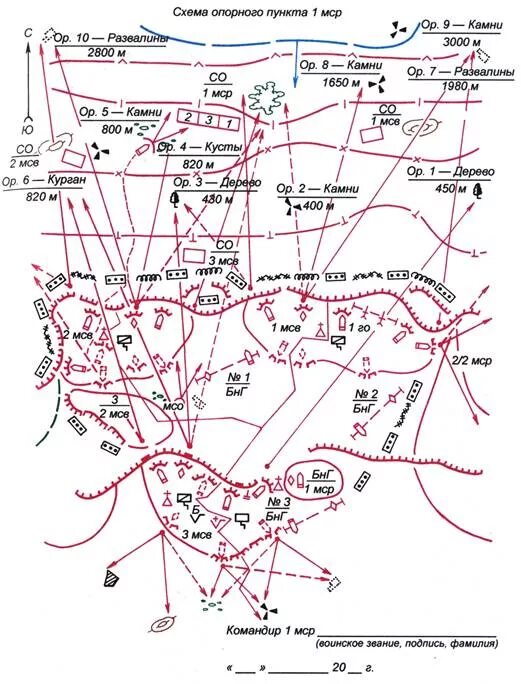 Схема опорного пункта 1 мср
С
Ю
Ор. 10 — Развалины
2800 м
Ор. 9 — Камни
3000 м
Ор. 8 — Камни
1650 м
Ор. 7 — Развалины
1980 м
СО
1 мср
Ор. 5 — Камни
800 м
2 3 1
СО
1 мсв
СО
2 мсв
Ор. 4 — Кусты
820 м
Ор. 6 — Курган
820 м
Ор. 3 — Дерево
430 м
Ор. 2 — Камни
400 м
Ор. 1 — Дерево
450 м
СО
3 мсв
2 мсв
1 мсв
1 го
2/2 мср
№ 1
БнГ
№ 2
БнГ
3
2 мсв
мсо
БнГ
1 мср
№ 3
БнГ
Б
3 мсв
Командир 1 мср
(воинское звание, подпись, фамилия)
« ___ » __________ 20 __ г.